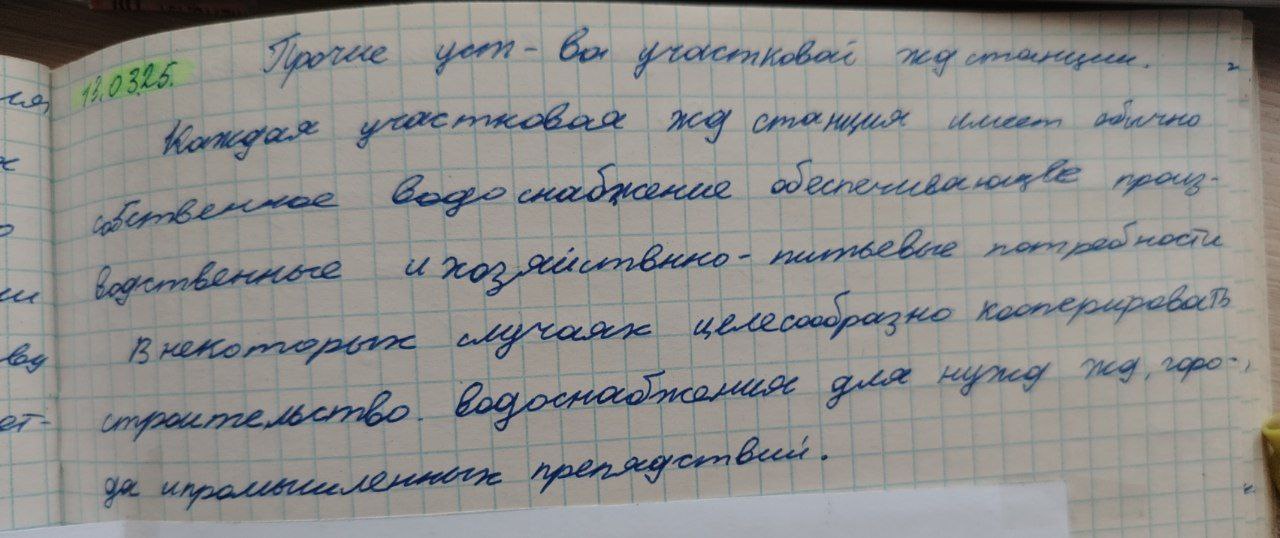 Прочие уст-ва участковой жд станции.
19.03.25.
Каждая участковая жд станция имеет обычно
собственное водоснабжение обеспечивающее произ-
водственные и хозяйствнно-питьевые потребности
В некоторых случаях целесообразно кооперировать
строительство. водоснабжения для нужд жд, горо-
да и промышленных препядствий.